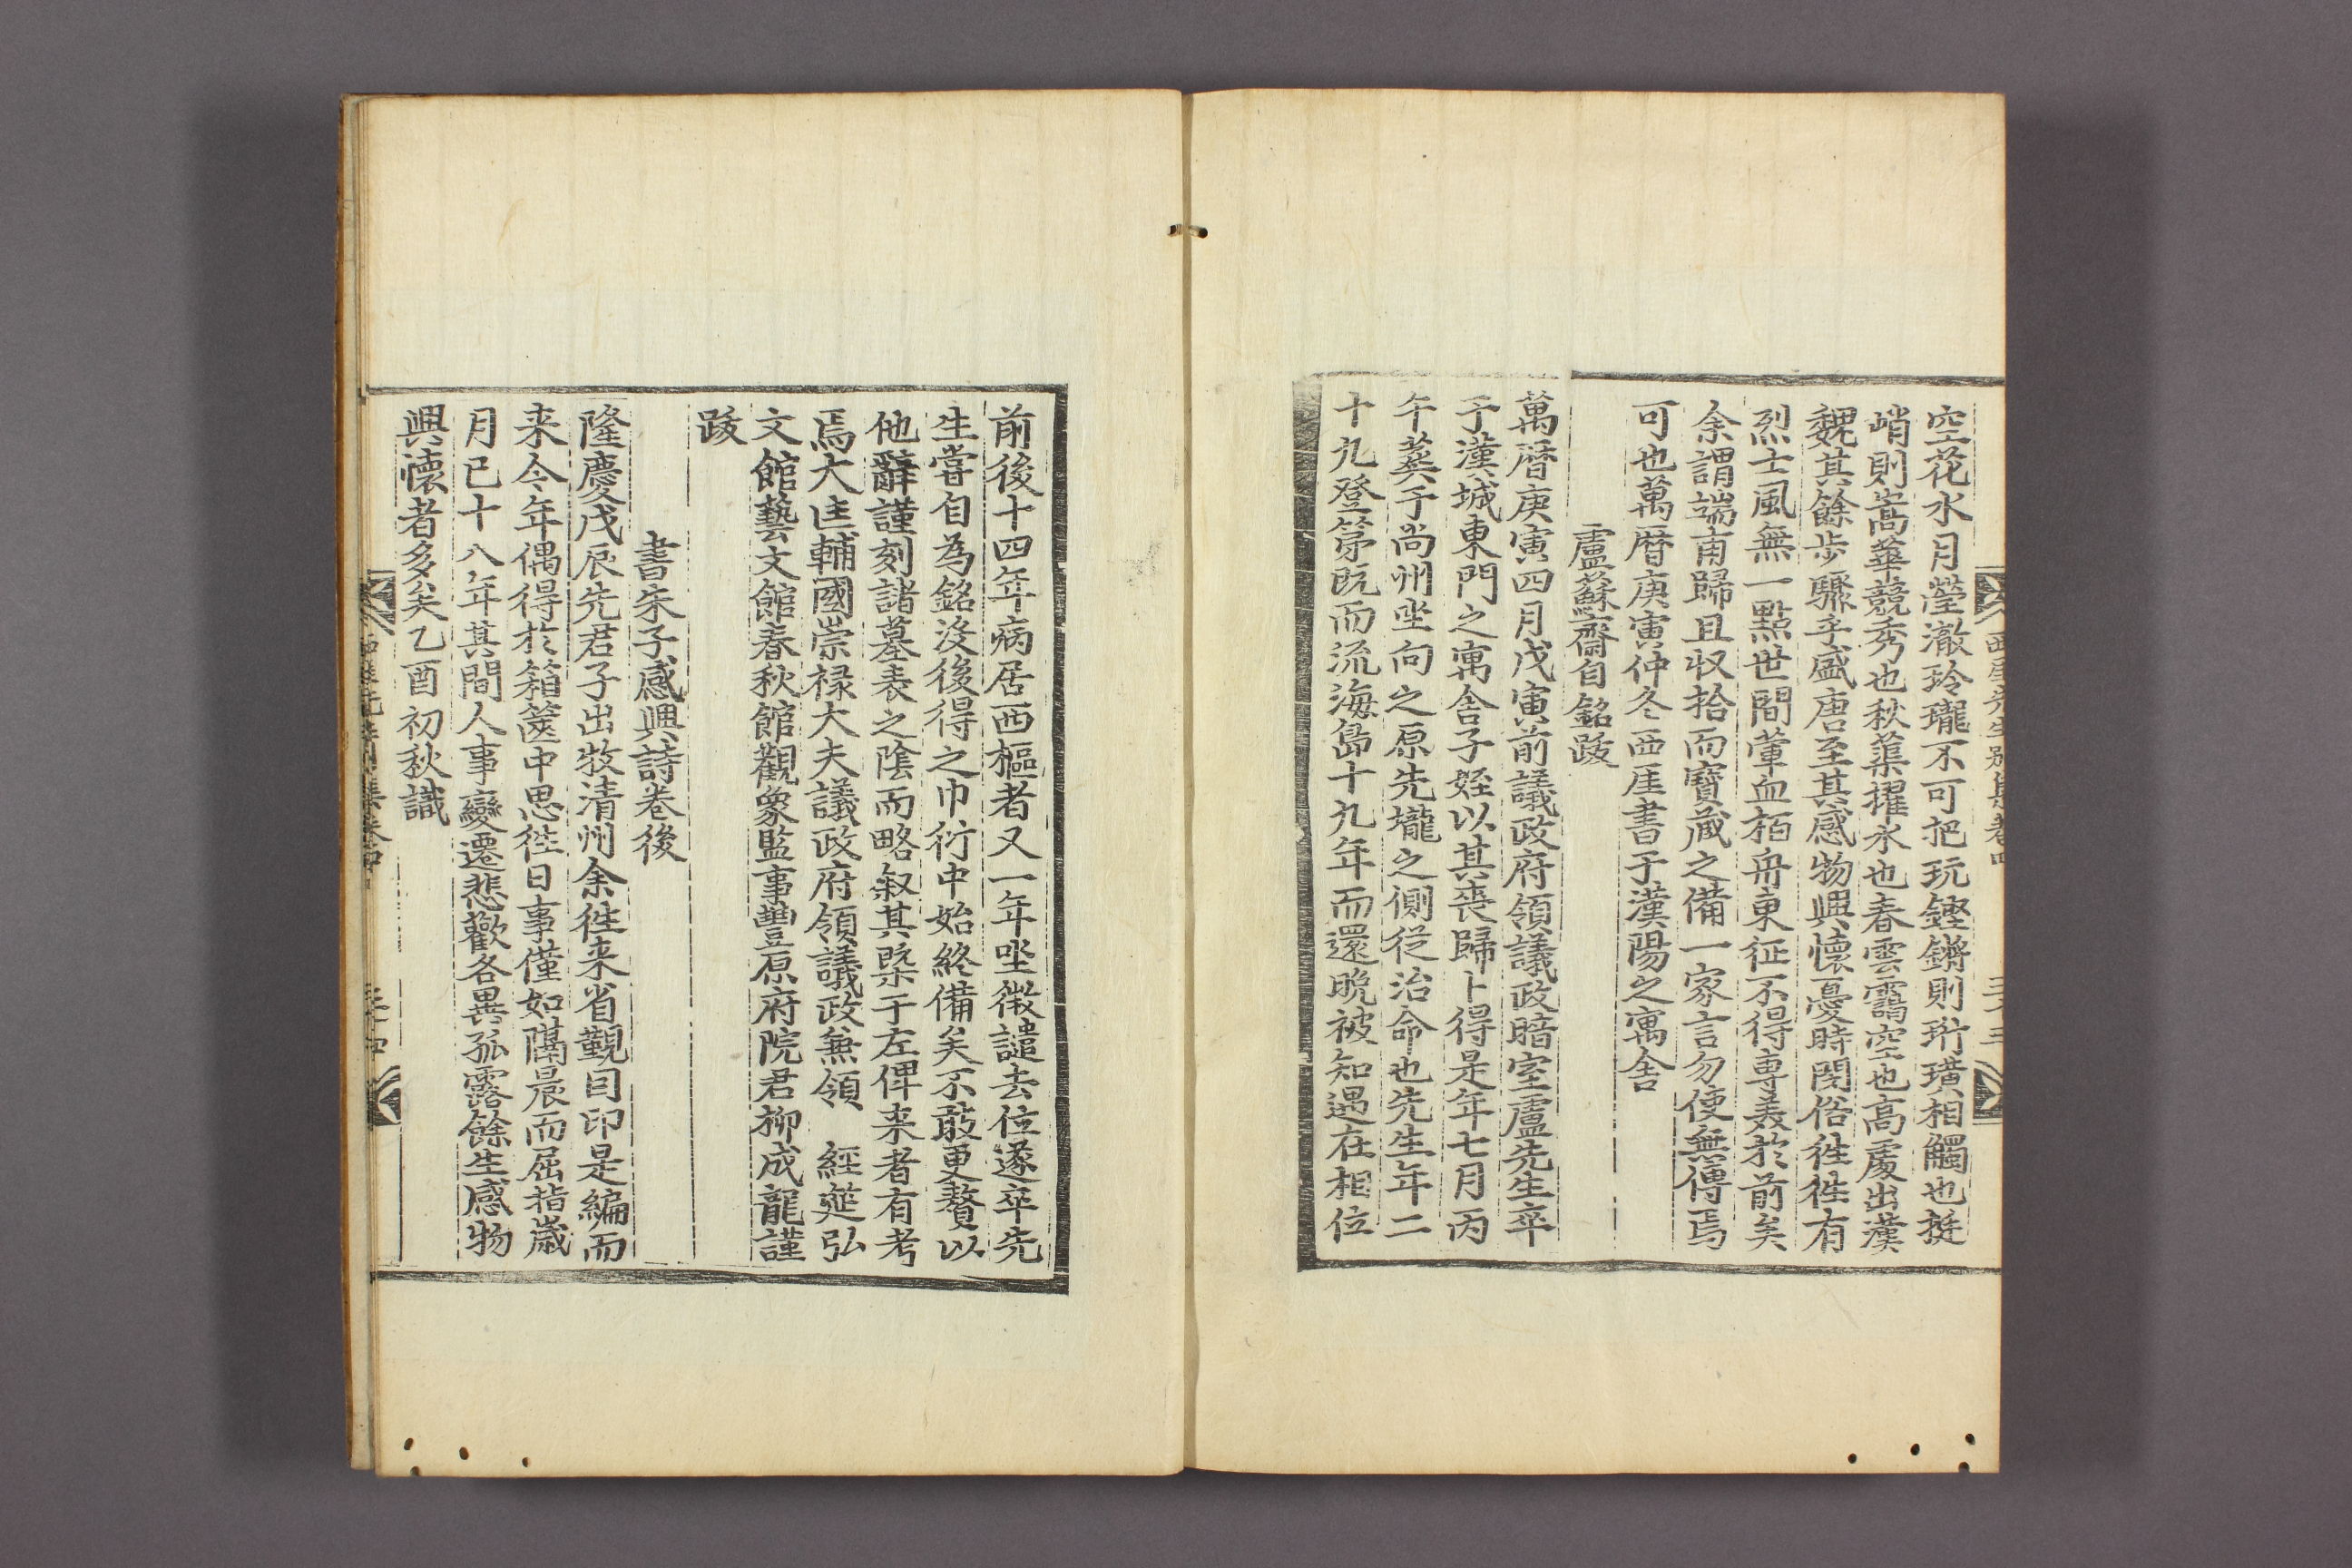 空花水月瑩澈玲瓏不可把玩鏗鏘則珩璜相觸也挺
峭則嵩華競秀也秋蕖擢水也春雲靄空也高處出漢
魏其餘步驟乎盛唐至其感物興懷憂時閔俗徃徃有
烈士風無一點世間葷血栢舟東征不得專美於前矣
余謂端甫歸且収拾而寶藏之備一家言勿使無傳焉
可也萬曆庚寅仲冬西厓書于漢陽之寓舍
盧蘇齋自銘跋
萬曆庚寅四月戊寅前議政府領議政暗室盧先生卒
于漢城東門之寓舍子姪以其喪歸卜得是年七月丙
午葬于尙州坐向之原先壠之側從治命也先生年二
十九登第旣而流海島十九年而還晩被知遇在相位
前後十四年病居西樞者又一年坐微譴去位遂卒先
生嘗自為銘沒後得之巾衍中始終備矣不敢更贅以
他辭謹刻諸墓表之陰而略叙其槩于左俾来者有考
焉大匡輔國崇祿大夫議政府領議政兼領 經筵弘
文館藝文館春秋館觀象監事豐原府院君柳成龍謹
跋
書朱子感興詩卷後
隆慶戊辰先君子出牧清州余徃来省覲目印是編而
来今年偶得於箱篋中思徃日事僅如隔晨而屈指歲
月已十八年其間人事變遷悲歡各異孤露餘生感物
興懷者多矣乙酉初秋識